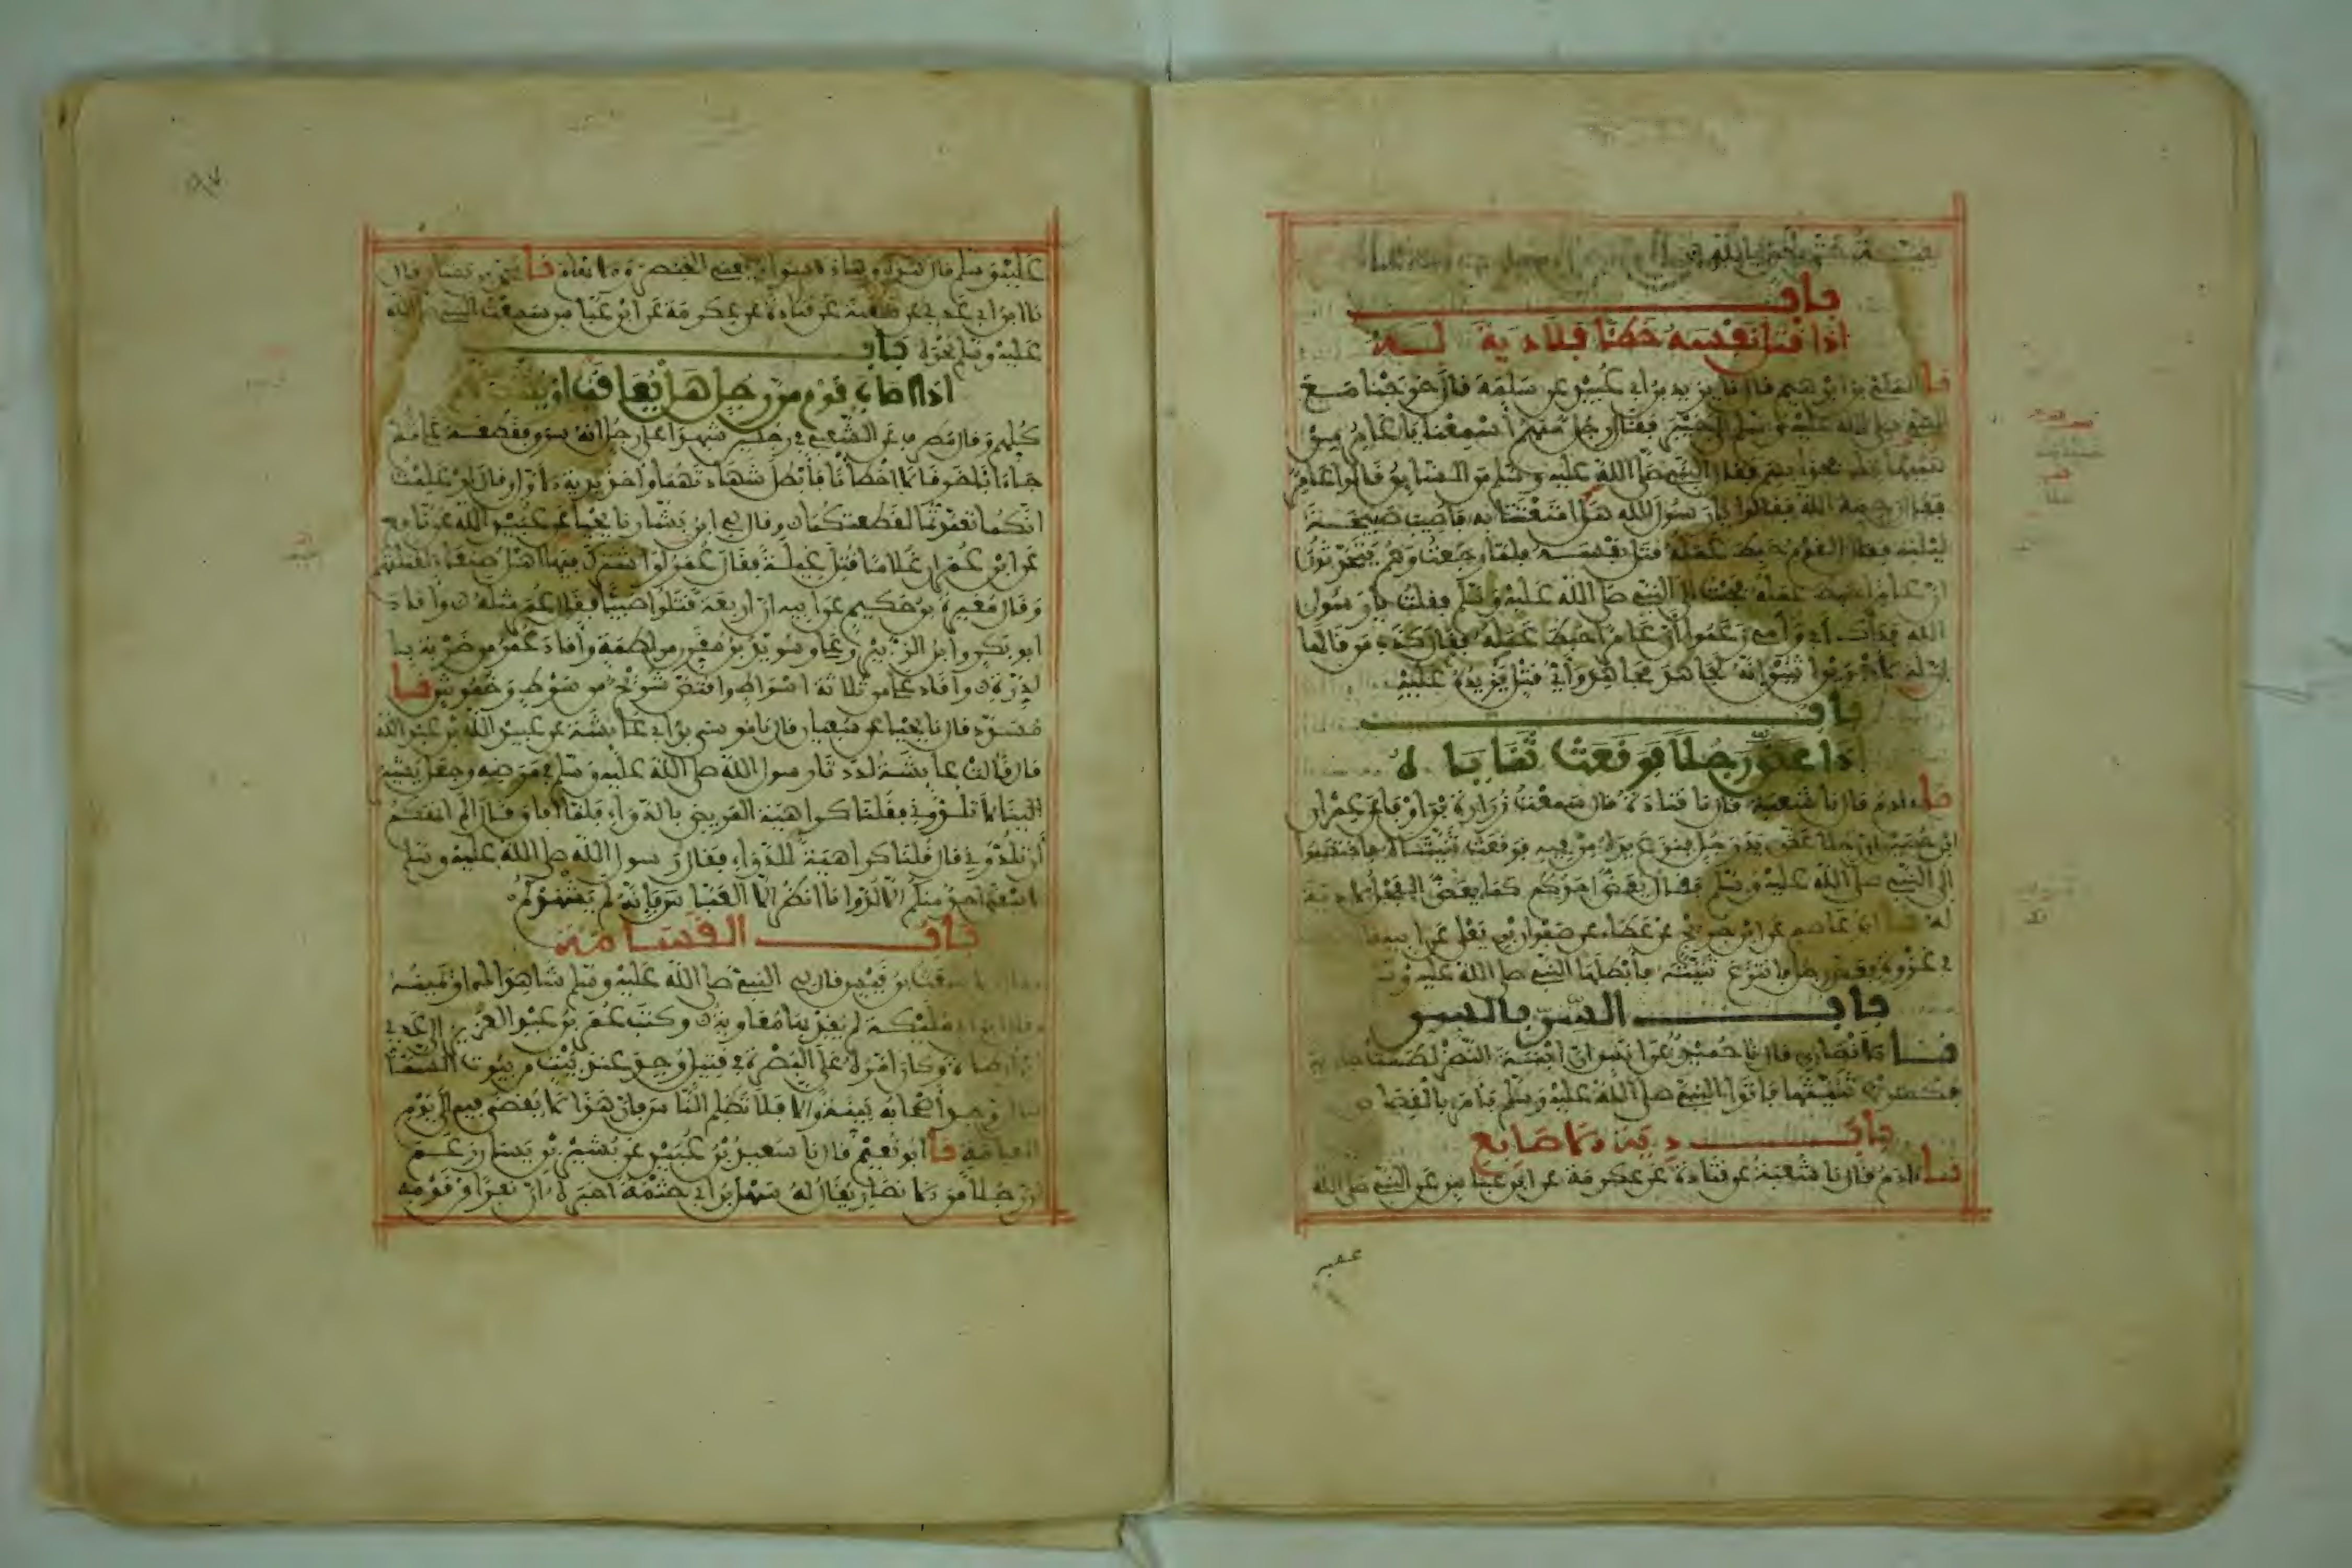 باب
اذا قتل نفسه خطا فلا دية له
نا المكي بن ابرهيم قال نا يزيد بن ابي عبيد عن سلمة قال خرجنا مع
النبي صلى الله عليه وسلم الى خيبر فقال رجل منهم أسمعنا يا عامر من
فقال النبي صلى الله عليه وسلم من السايق قالوا عامر
فقال رحمه الله فقالوا يا رسول الله هلا امتعتنا به فاصيب صبيحة
ليلته فقال القوم حبط عمله قتل نفسه فلما رجعت وهم يتحدثون
ان عامرا حبط عمله فجئت الى النبي صلى الله عليه وسلم فقلت يا رسول
الله فداك ابي وأمي زعموا أن عامرا حبط عمله فقال كذب من قالها
ان له لأجرين اثنين إنه لجاهد مجاهد وأي قتل يزيده عليه
باب
اذا عض رجلا فوقعت ثناياه
نا ادم قال نا شعبة قال نا قتادة قال سمعت زرارة بن اوفى عن عمران
ابن حصين ان رجلا عض يد رجل فنزع يده من فيه فوقعت ثنيتاه فاختصموا
الى النبي صلى الله عليه وسلم فقال يعض احدكم كما يعض الفحل لا دية
له نا ابو عاصم عن ابن جريج عن عطاء عن صفوان بن يعلى عن ابيه
في غزوة فعض رجل فانتزع ثنيته فأبطلها النبي صلى الله عليه
باب السن بالسن
نا الانصاري قال نا حميد عن انس ان ابنة النضر لطمت جارية
فكسرت ثنيتها فاتوا النبي صلى الله عليه وسلم فامر بالقصاص
باب دية الاصابع
نا ادم قال نا شعبة عن قتادة عن عكرمة عن ابن عباس عن النبي صلى الله
عليه
عليه وسلم قال هذه وهذه سواء يعني الخنصر والابهام نا محمد بن بشار قال
نا ابن ابي عدي عن شعبة عن قتادة عن عكرمة عن ابن عباس سمعت النبي صلى الله
عليه وسلم نحوه باب
اذا اصاب قوم من رجل هل يعاقب او يقتص
كلهم وقال مطرف عن الشعبي في رجلين شهدا على رجل انه سرق فقطعه علي ثم
جاءا بآخر وقالا اخطأنا فأبطل شهادتهما واخذ بدية الاول وقال لو علمت
انكما تعمدتما لقطعتكما وقال لي ابن بشار نا يحيى عن عبيد الله عن نافع
عن ابن عمر ان غلاما قتل غيلة فقال عمر لو اشترك فيها اهل صنعاء لقتلتهم
وقال مغيرة بن حكيم عن ابيه ان اربعة قتلوا صبيا فقال عمر مثله واقاد
ابو بكر وابن الزبير وعلي وسويد بن مقرن من لطمة وأقاد عمر من ضربة با
لدرة واقاد علي من ثلاثة اسواط واقتص شريح من سوط وخموش نا
مسدد قال نا يحيى عن سفيان قال نا موسى بن ابي عائشة عن عبيد الله بن عبد الله
قال قالت عايشة لددنا رسول الله صلى الله عليه وسلم في مرضه وجعل يشير
الينا لا تلدوني فقلنا كراهية المريض بالدواء فلما افاق قال الم انهكم
أن تلدوني قال قلنا كراهية للدواء فقال رسول الله صلى الله عليه وسلم
لا يبقى احد منكم الا لد وانا انظر الا العباس فإنه لم يشهدكم
باب القسامة
وقال الاشعث بن قيس قال لي النبي صلى الله عليه وسلم شاهداك او يمينه
وقال ابن ابي مليكة لم يقد بها معاوية وكتب عمر بن عبد العزيز الى عدي
ابن ارطاة وكان امره على البصرة في قتيل وجد عند بيت من بيوت السمانين
ان وجد أصحابه بينة والا فلا تظلم الناس فإن هذا لا يقضى فيه الى يوم
القيامة نا ابو نعيم قال نا سعيد بن عبيد عن بشير بن يسار زعم
ان رجلا من الانصار يقال له سهل بن ابي حثمة اخبره ان نفرا من قومه